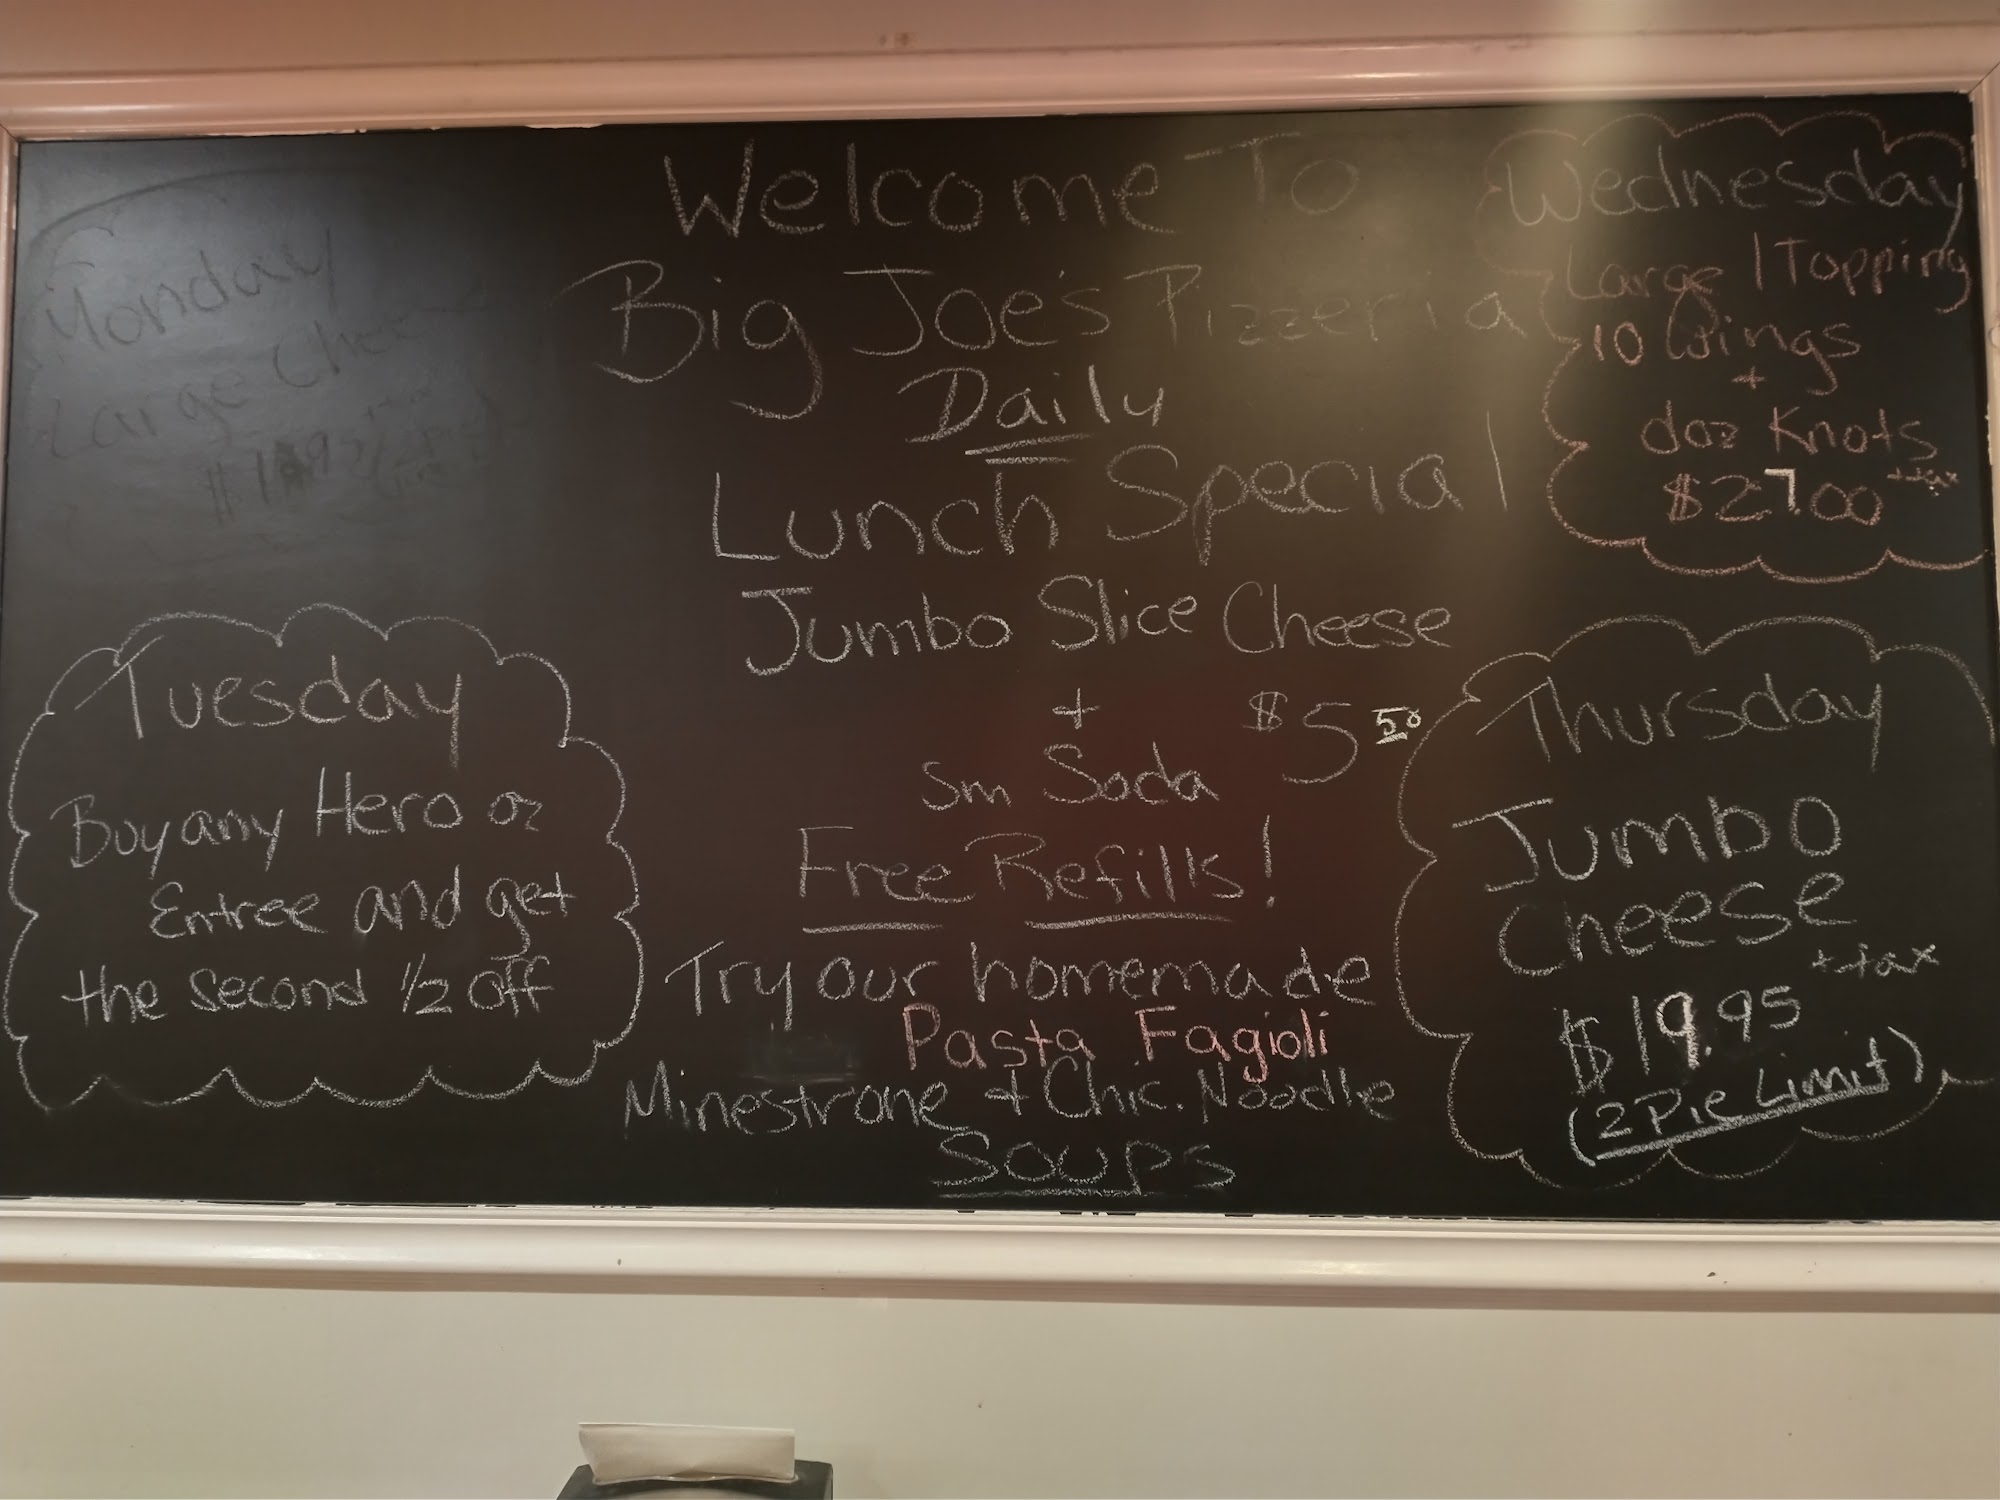 Welcome To
Big Joe's Pizzeria
Daily
Lunch Special
Jumbo Slice Cheese
+ $5 50
Sm Soda
Free Refills!
Try our homemade
Pasta Fagioli
Minestrone + Chic. Noodle
Soups
Monday
Large
Tuesday
Buy any Hero or
Entree and get
the second 1/2 off
Wednesday
Large 1 Topping
10 Wings
+
doz Knots
$27.00 + tax
Thursday
Jumbo
Cheese
+ tax
$19.95
(2 Pie Limit)